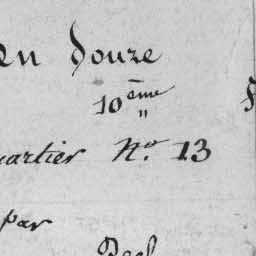 en douze
10ème
quartier No. 13
par